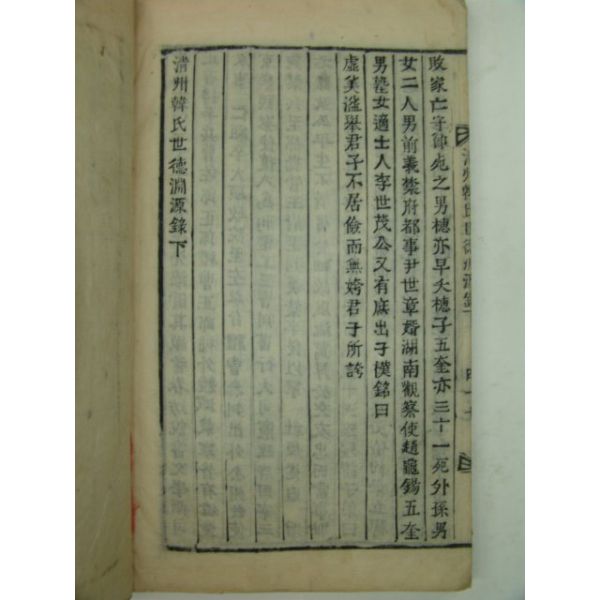 敗家亡守鍾宛之男橞亦早夭橞子五奎亦三十一死外孫男
女二人男前義禁府都事尹世章婚湖南觀察使趙龜錫五奎
男塾女適士人李世茂公又有庶出子樸銘曰
虛美溢擧君子不居儉而無誇君子所誇
清州韓氏世德淵源錄下
清州韓氏世德淵源錄